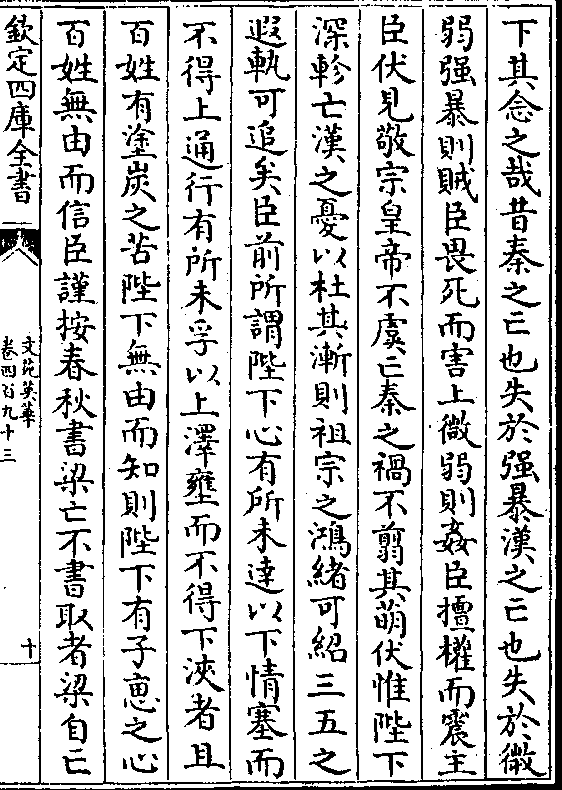 下其念之哉昔秦之亡也失於强暴漢之亡也失於微
弱强暴則賊臣畏死而害上微弱則姦臣擅權而震主
臣伏見敬宗皇帝不虞亡秦之禍不翦其萌伏惟陛下
深軫亡漢之憂以杜其漸則祖宗之鴻緒可紹三五之
遐軌可追矣臣前所謂陛下心有所未達以下情塞而
不得上通行有所未孚以上澤壅而不得下浹者且
百姓有塗炭之苦陛下無由而知則陛下有子恵之心
百姓無由而信臣謹按春秋書梁亡不書取者梁自亡
欽定四庫全書
文苑英華
卷四百九十三
十